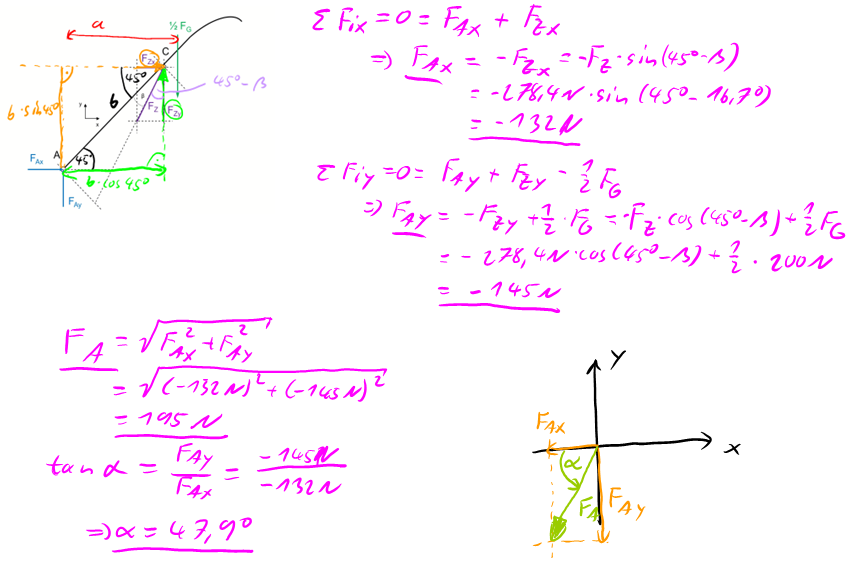 a
½ F_G
C
F_Zx
45°
45°-β
b
β
F_Z
F_Zy
b·sin45°
y
x
A
45°
F_Ax
b·cos45°
F_Ay
Σ F_ix = 0 = F_Ax + F_Zx
⇒ F_Ax = -F_Zx = -F_Z · sin(45°-β)
= -278,4N · sin (45° - 16,7°)
= -132N
Σ F_iy = 0 = F_Ay + F_Zy - 1/2 F_G
⇒ F_Ay = -F_Zy + 1/2 · F_G = -F_Z · cos(45°-β) + 1/2 F_G
= -278,4N · cos(45°-β) + 1/2 · 200N
= -145N
F_A = √(F_Ax² + F_Ay²)
= √((-132N)² + (-145N)²)
= 195N
tan α = F_Ay / F_Ax = -145N / -132N
⇒ α = 47,9°
y
x
F_Ax
α
F_A
F_Ay